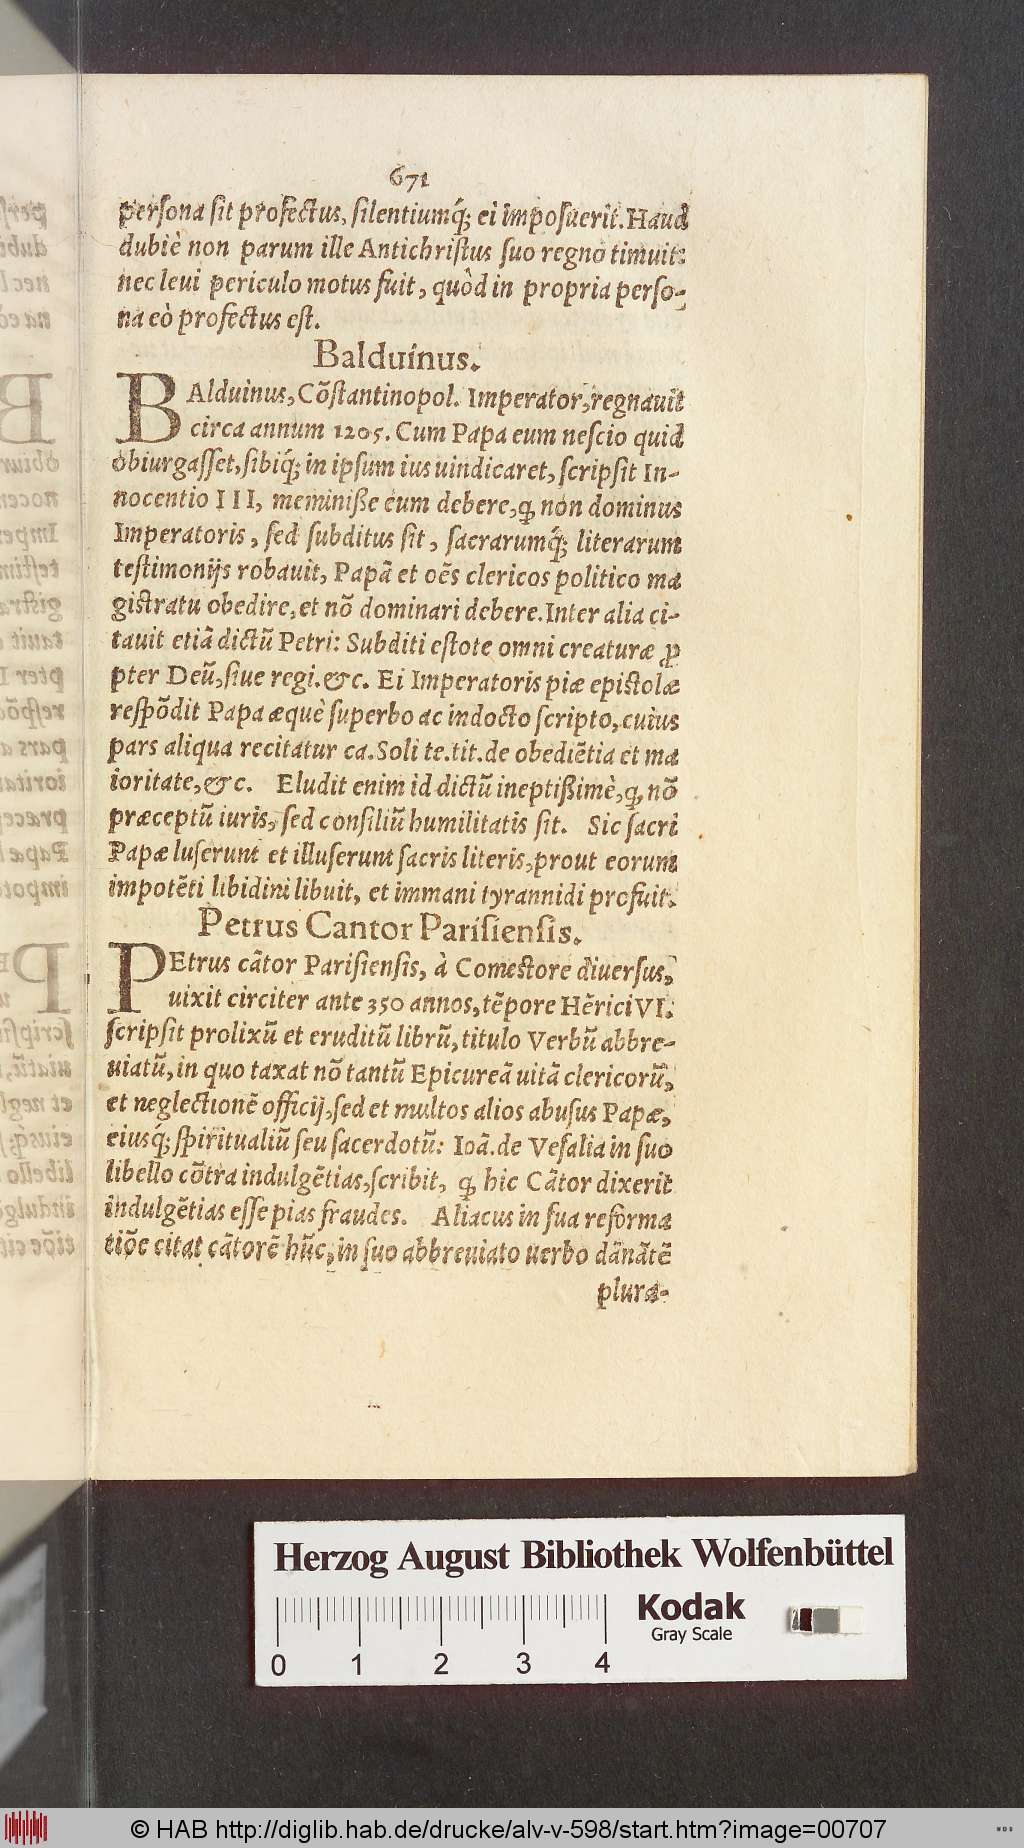 671
persona sit profectus, silentiumq́; ei imposuerit. Haud
dubiè non parum ille Antichristus suo regno timuit:
nec leui periculo motus fuit, quòd in propria perso-
na eò profectus est.
Balduinus.
BAlduinus, Cõstantinopol. Imperator, regnauit
circa annum 1205. Cum Papa eum nescio quid
obiurgasset, sibiq́; in ipsum ius uindicaret, scripsit In-
nocentio III, meminiße eum debere, ꝙ non dominus
Imperatoris, sed subditus sit, sacrarumq́; literarum
testimonijs robauit, Papã et oẽs clericos politico ma
gistratu obedire, et nõ dominari debere. Inter alia ci-
tauit etiã dictũ Petri: Subditi estote omni creaturæ ꝓ
pter Deũ, siue regi. &c. Ei Imperatoris piæ epistolæ
respõdit Papa æquè superbo ac indocto scripto, cuius
pars aliqua recitatur ca. Soli te. tit. de obediẽtia et ma
ioritate, &c. Eludit enim id dictũ ineptißimè, ꝙ nõ
præceptũ iuris, sed consiliũ humilitatis sit. Sic sacri
Papæ luserunt et illuserunt sacris literis, prout eorum
impotẽti libidini libuit, et immani tyrannidi profuit.
Petrus Cantor Parisiensis.
PEtrus cãtor Parisiensis, à Comestore diuersus,
uixit circiter ante 350 annos, tẽpore Hẽrici VI.
scripsit prolixũ et eruditũ librũ, titulo Verbũ abbre-
uiatũ, in quo taxat nõ tantũ Epicureã uitã clericorũ,
et neglectionẽ officij, sed et multos alios abusus Papæ,
eiusq́; spiritualiũ seu sacerdotũ: Ioã. de Vesalia in suo
libello cõtra indulgẽtias, scribit, ꝙ hic Cãtor dixerit
indulgẽtias esse pias fraudes. Aliacus in sua reforma
tiõe citat cãtorẽ hũc, in suo abbreuiato uerbo dãnãtẽ
plura-
Herzog August Bibliothek Wolfenbüttel
Kodak
Gray Scale
0 1 2 3 4
© HAB http://diglib.hab.de/drucke/alv-v-598/start.htm?image=00707